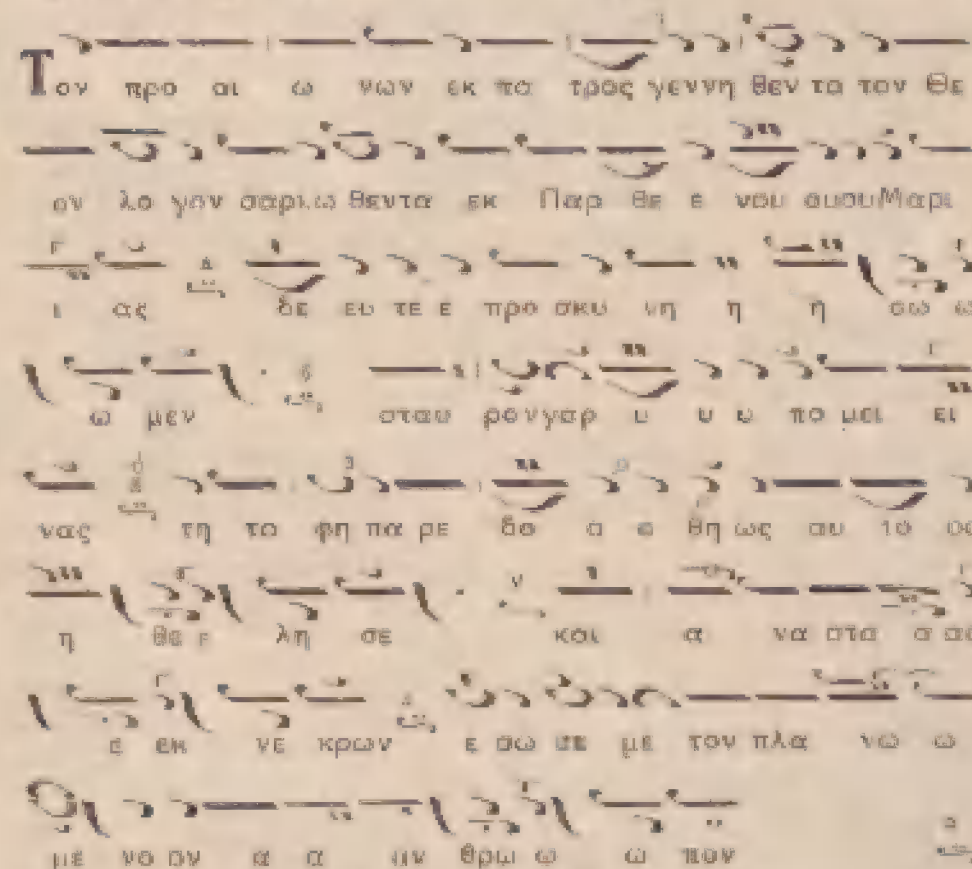 Τον προ αι ω νων εκ πα τρος γεννη θεν τα τον Θε
ον λο γον σαρκω θεντα εκ Παρ θε ε νου ουου Μαρι
ι ας δε ευ τε ε προ σκυ νη η η σω ω
ω μεν σταυ ρονγαρ υ υ υ πο μει ει
νας τη τα φη πα ρε δο ο ο θη ως αυ το ος
η θε ε λη σε και α να στα α ας
ε εκ νε κρων ε σω σε με τον πλα νω ω
με νο ον α α αν θρω ω ω πον